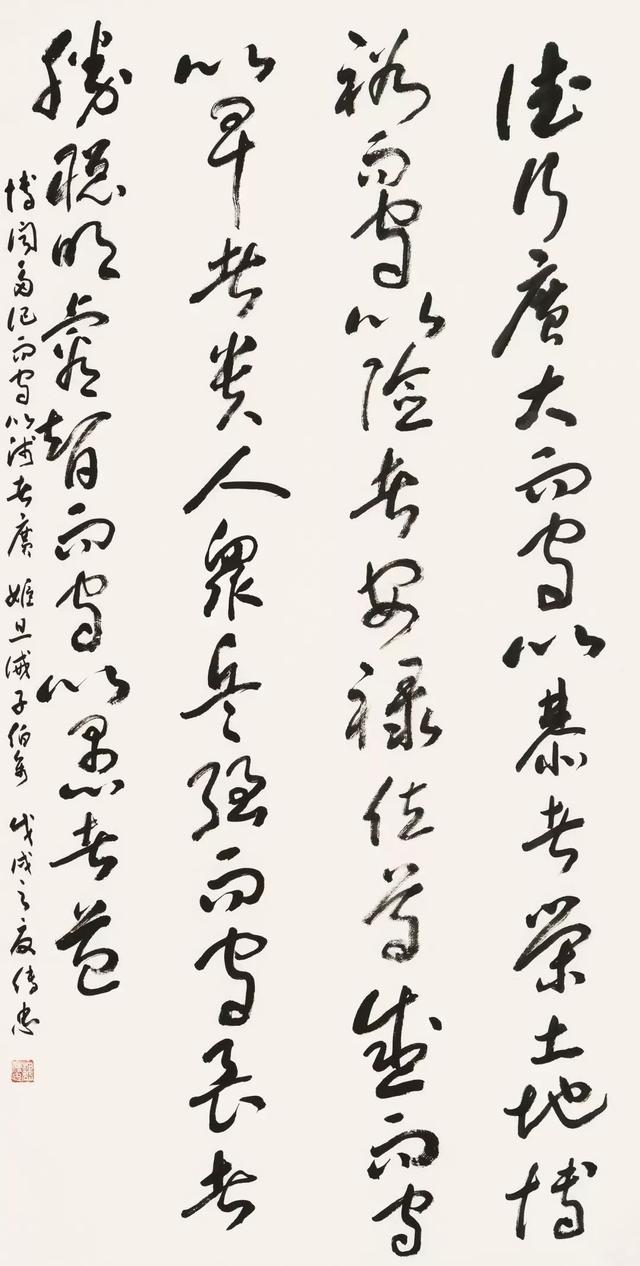 德行廣大而守以恭者榮土地博
裕而守以險者安祿位尊盛而守
以卑者貴人眾兵强而守畏者
勝聰明睿智而守以愚者益
博聞多記而守以淺者廣 姬旦誡子伯禽 戊戌之夏傳忠